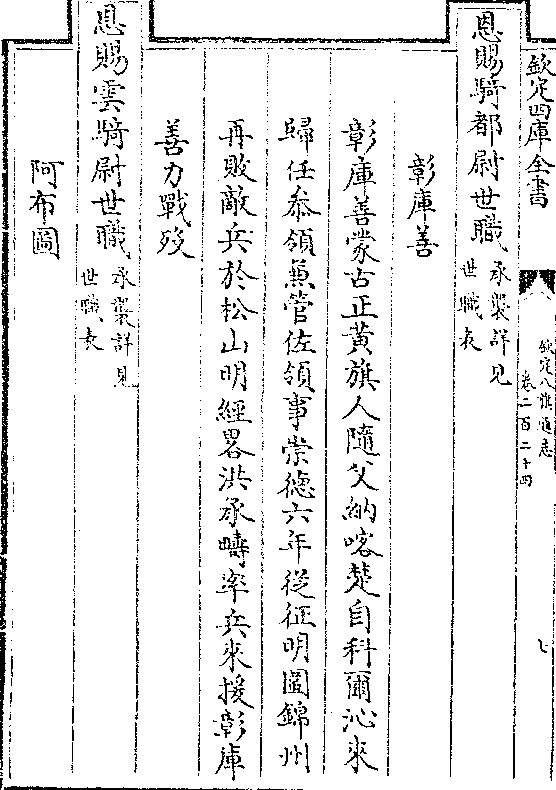 欽定四庫全書
欽定八旗通志
卷二百二十四
七
恩賜騎都尉世職承襲詳見
世職表
彰庫善
彰庫善蒙古正黃旗人隨父納喀楚自科爾沁來
歸任叅領兼管佐領事崇德六年從征明圍錦州
再敗敵兵於松山明經畧洪承疇率兵來援彰庫
善力戰歿
恩賜雲騎尉世職承襲詳見
世職表
阿布圖